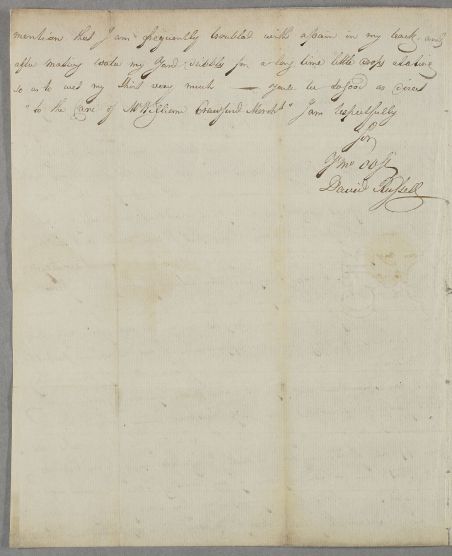 mention that I am frequently troubled with a pain in my back and
after making water my Yard dribbles for a long time little drops
so as to wet my Shirt very much — you'll be so good as direct
"to the Care of Mr William Crawfurd Mercht" I am respectfully
Sir
David Russell